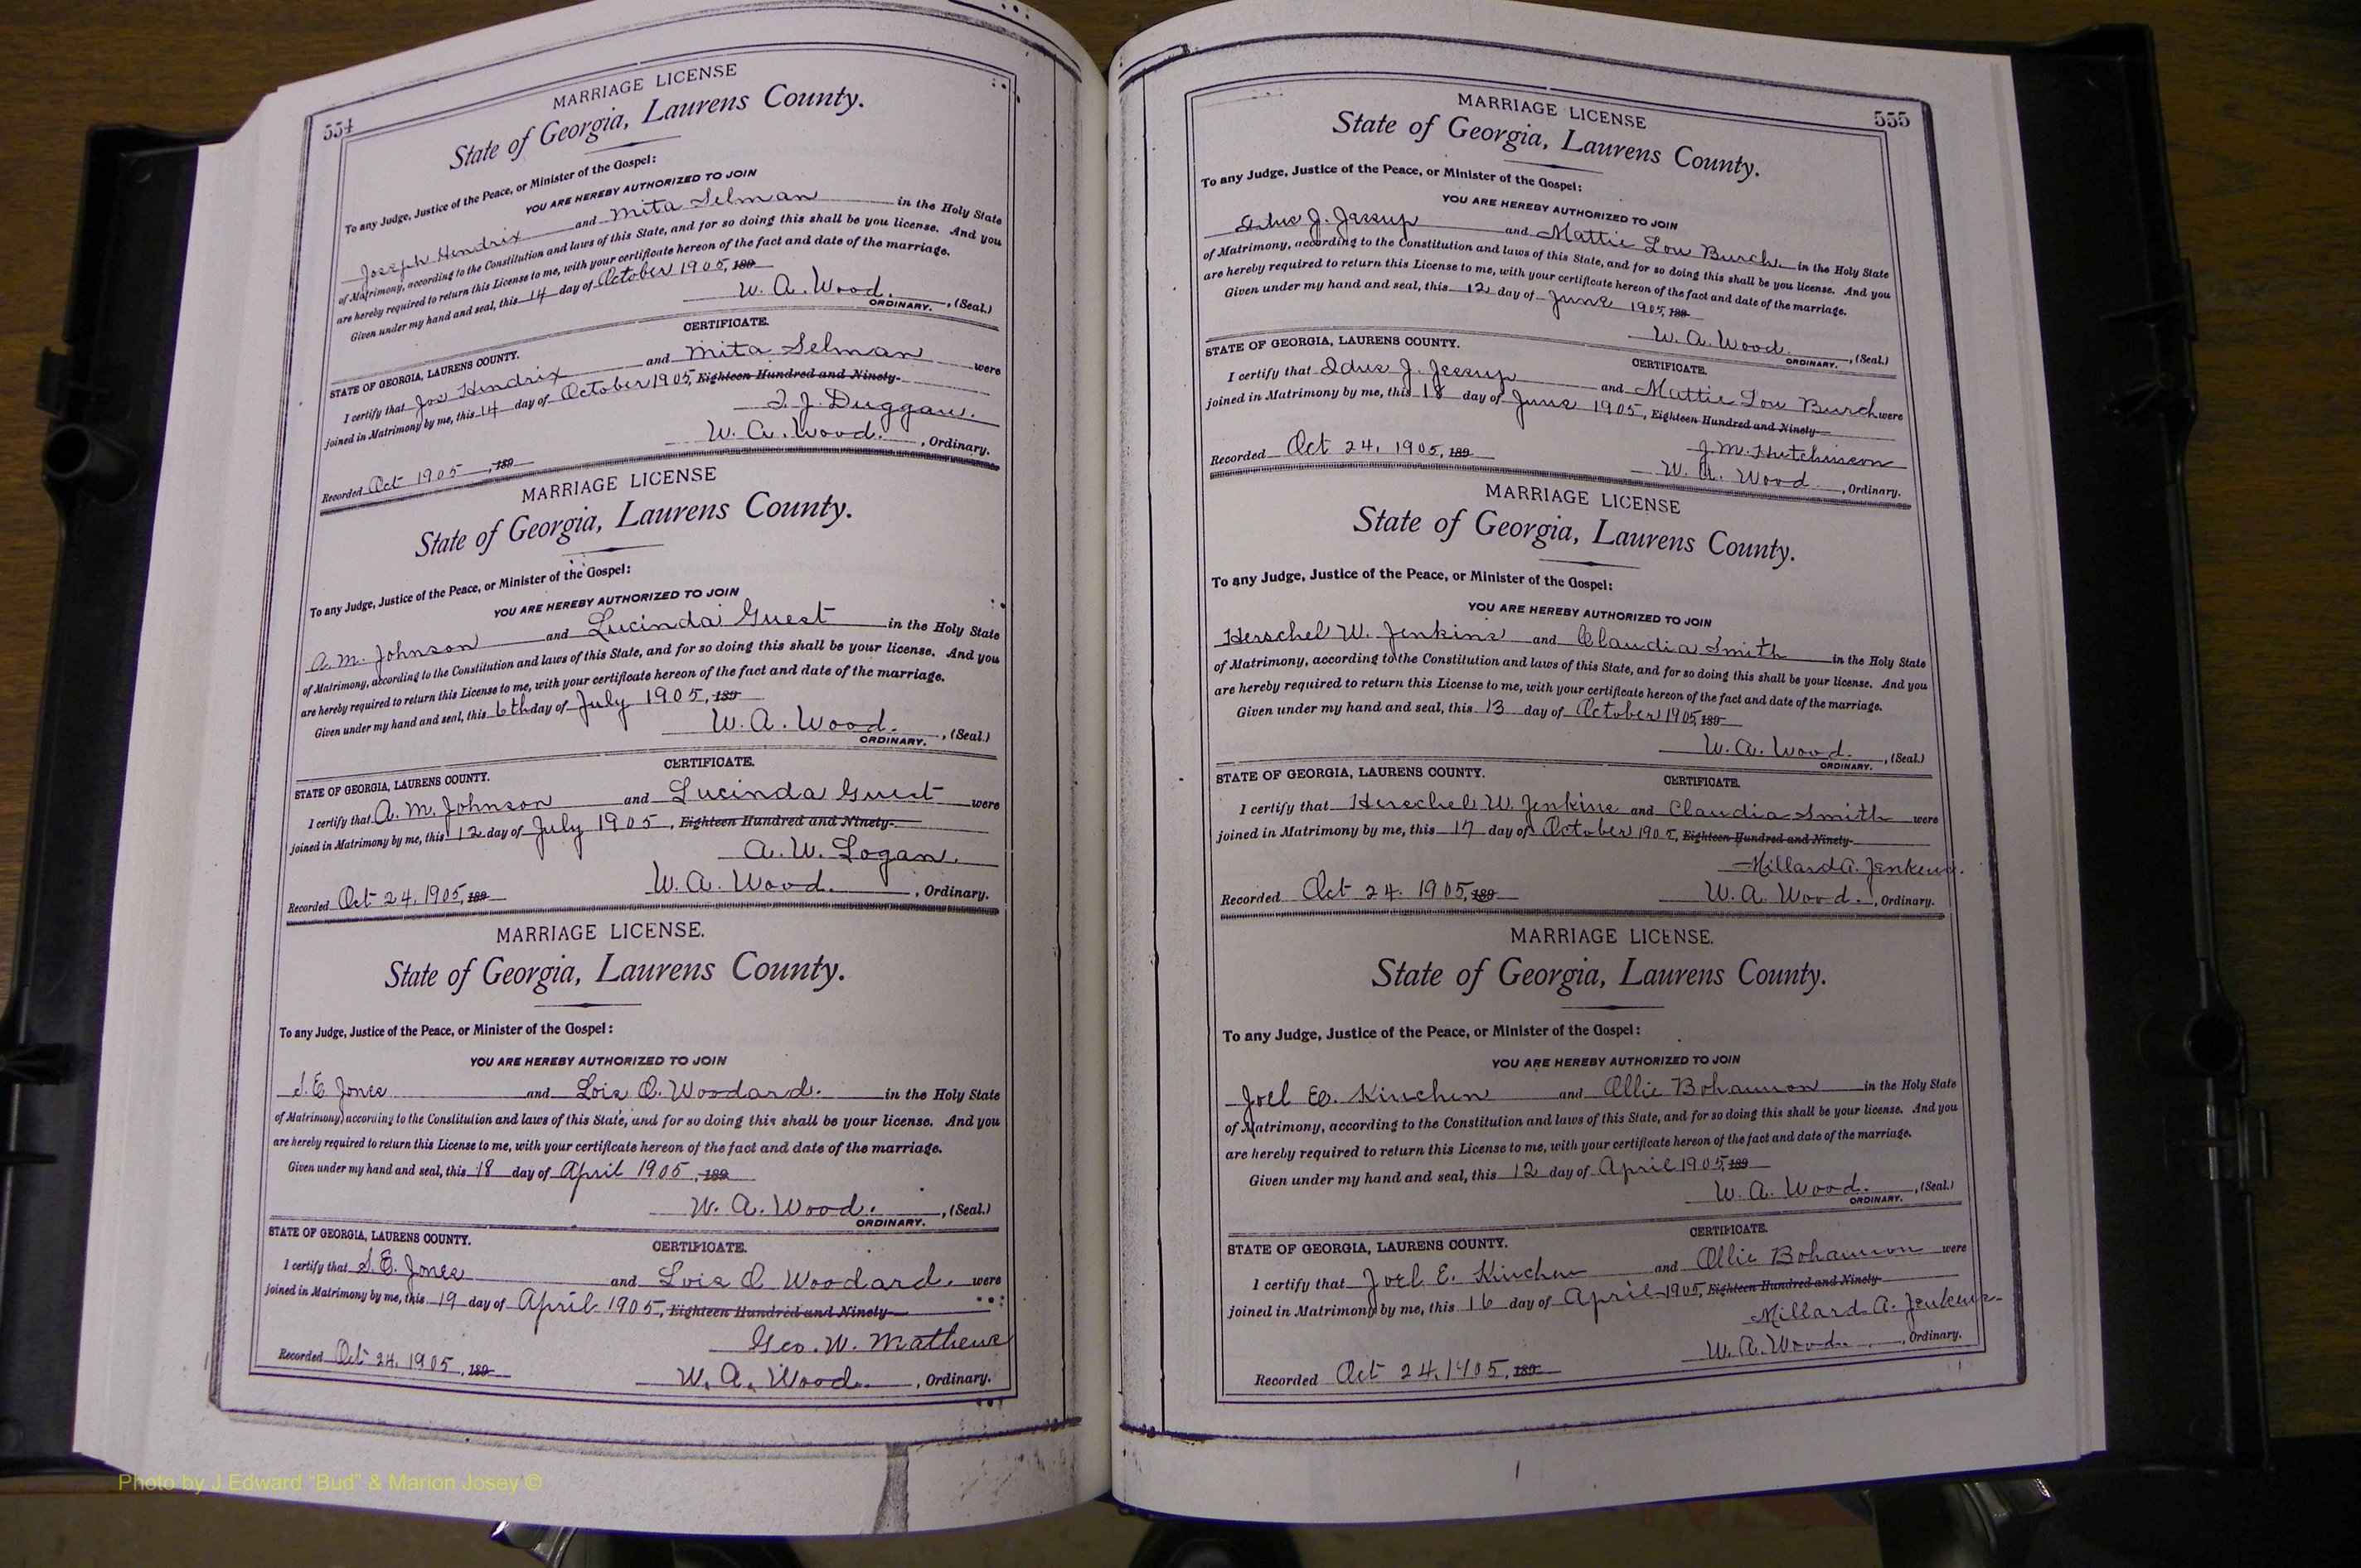 554
MARRIAGE LICENSE
State of Georgia, Laurens County.
To any Judge, Justice of the Peace, or Minister of the Gospel:
YOU ARE HEREBY AUTHORIZED TO JOIN
Joseph Hendrix and Mita Selman in the Holy State
of Matrimony, according to the Constitution and laws of this State, and for so doing this shall be you license. And you
are hereby required to return this License to me, with your certificate hereon of the fact and date of the marriage.
Given under my hand and seal, this 14 day of October 1905, 189
W. A. Wood. , (Seal.)
ORDINARY.
CERTIFICATE.
STATE OF GEORGIA, LAURENS COUNTY.
I certify that Jos Hendrix and Mita Selman were
joined in Matrimony by me, this 14 day of October 1905, Eighteen Hundred and Ninety-
T. J. Duggan.
W. A. Wood. , Ordinary.
Recorded Oct 1905 , 189
MARRIAGE LICENSE
State of Georgia, Laurens County.
To any Judge, Justice of the Peace, or Minister of the Gospel:
YOU ARE HEREBY AUTHORIZED TO JOIN
A. M. Johnson and Lucinda Guest in the Holy State
of Matrimony, according to the Constitution and laws of this State, and for so doing this shall be your license. And you
are hereby required to return this License to me, with your certificate hereon of the fact and date of the marriage.
Given under my hand and seal, this 6th day of July 1905, 189
W. A. Wood. , (Seal.)
ORDINARY.
CERTIFICATE.
STATE OF GEORGIA, LAURENS COUNTY.
I certify that A. M. Johnson and Lucinda Guest were
joined in Matrimony by me, this 12 day of July 1905, Eighteen Hundred and Ninety-
A. W. Logan.
W. A. Wood. , Ordinary.
Recorded Oct 24. 1905, 189
MARRIAGE LICENSE.
State of Georgia, Laurens County.
To any Judge, Justice of the Peace, or Minister of the Gospel:
YOU ARE HEREBY AUTHORIZED TO JOIN
S. E. Jones and Lois O. Woodard. in the Holy State
of Matrimony, according to the Constitution and laws of this State, and for so doing this shall be your license. And you
are hereby required to return this License to me, with your certificate hereon of the fact and date of the marriage.
Given under my hand and seal, this 18 day of April 1905, 189
W. A. Wood. , (Seal.)
ORDINARY.
STATE OF GEORGIA, LAURENS COUNTY.
CERTIFICATE.
I certify that S. E. Jones and Lois O Woodard. were
joined in Matrimony by me, this 19 day of April 1905, Eighteen Hundred and Ninety-
Geo. W. Mathews
W. A. Wood. , Ordinary.
Recorded Oct 24. 1905, 189
555
MARRIAGE LICENSE
State of Georgia, Laurens County.
To any Judge, Justice of the Peace, or Minister of the Gospel:
YOU ARE HEREBY AUTHORIZED TO JOIN
Idus J. Jessup and Mattie Lou Burch in the Holy State
of Matrimony, according to the Constitution and laws of this State, and for so doing this shall be you license. And you
are hereby required to return this License to me, with your certificate hereon of the fact and date of the marriage.
Given under my hand and seal, this 12 day of June 1905, 189
W. A. Wood. , (Seal.)
ORDINARY.
STATE OF GEORGIA, LAURENS COUNTY.
CERTIFICATE.
I certify that Idus J. Jessup and Mattie Lou Burch were
joined in Matrimony by me, this 18 day of June 1905, Eighteen Hundred and Ninety-
J. M. Hutchinson
Recorded Oct 24. 1905, 189
W. A. Wood , Ordinary.
MARRIAGE LICENSE
State of Georgia, Laurens County.
To any Judge, Justice of the Peace, or Minister of the Gospel:
YOU ARE HEREBY AUTHORIZED TO JOIN
Herschel W. Jenkins and Claudia Smith in the Holy State
of Matrimony, according to the Constitution and laws of this State, and for so doing this shall be your license. And you
are hereby required to return this License to me, with your certificate hereon of the fact and date of the marriage.
Given under my hand and seal, this 13 day of October 1905, 189
W. A. Wood. , (Seal.)
ORDINARY.
STATE OF GEORGIA, LAURENS COUNTY.
CERTIFICATE.
I certify that Herschel W. Jenkins and Claudia Smith were
joined in Matrimony by me, this 17 day of October 1905, Eighteen Hundred and Ninety-
Millard A. Jenkens.
Recorded Oct 24. 1905, 189
W. A. Wood. , Ordinary.
MARRIAGE LICENSE.
State of Georgia, Laurens County.
To any Judge, Justice of the Peace, or Minister of the Gospel:
YOU ARE HEREBY AUTHORIZED TO JOIN
Joel E. Kinchen and Ollie Bohannon in the Holy State
of Matrimony, according to the Constitution and laws of this State, and for so doing this shall be your license. And you
are hereby required to return this License to me, with your certificate hereon of the fact and date of the marriage.
Given under my hand and seal, this 12 day of April 1905, 189
W. A. Wood. , (Seal.)
ORDINARY.
CERTIFICATE.
STATE OF GEORGIA, LAURENS COUNTY.
I certify that Joel E. Kinchen and Ollie Bohannon were
joined in Matrimony by me, this 16 day of April 1905, Eighteen Hundred and Ninety-
Millard A. Jenkens
W. A. Wood. , Ordinary.
Recorded Oct 24. 1905, 189
Photo by J Edward "Bud" & Marion Josey ©